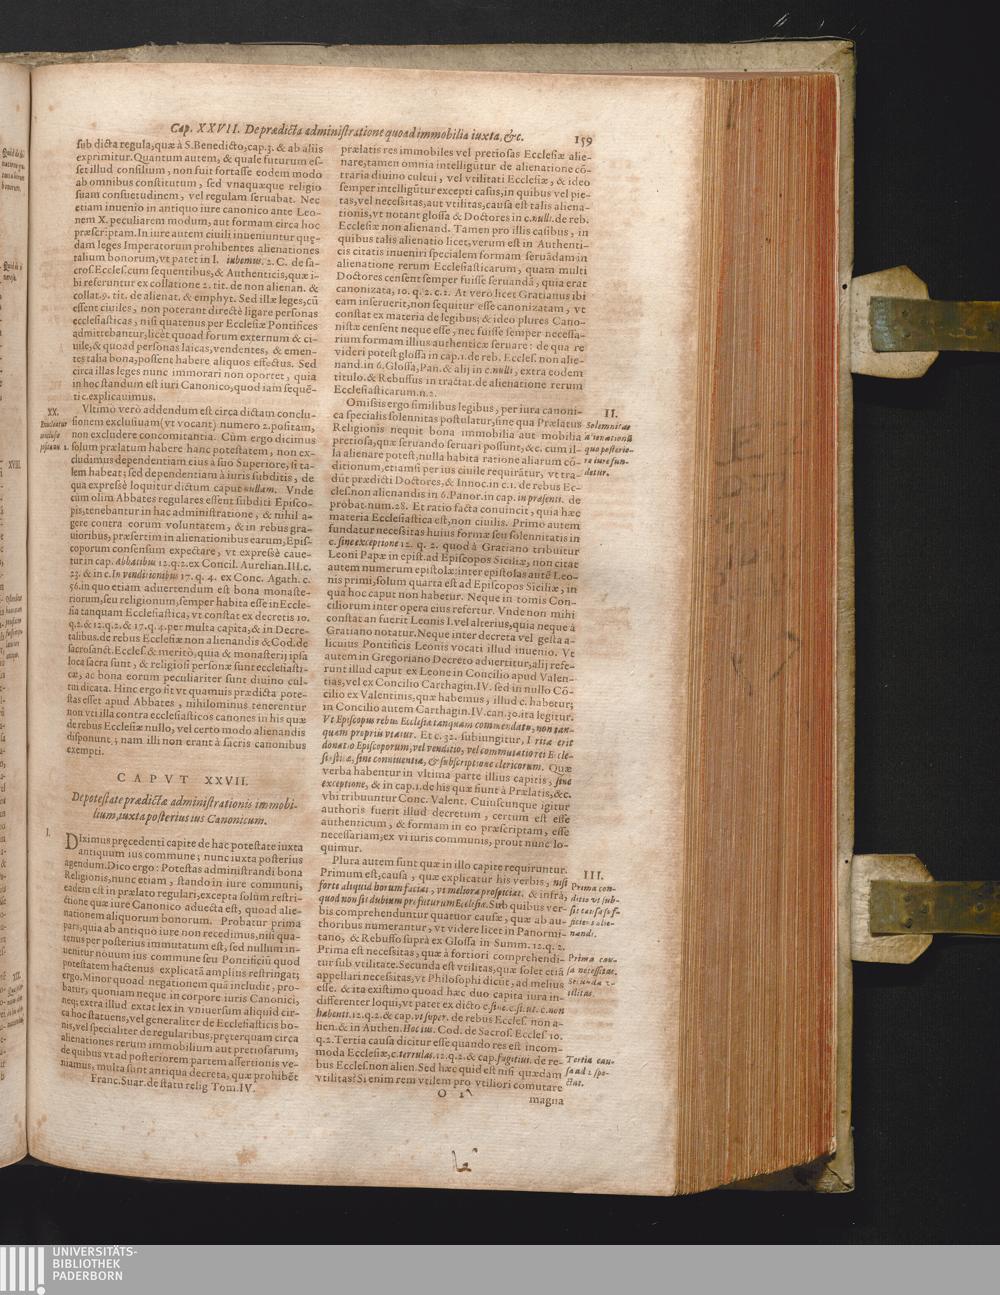 Cap. XXVII. De prædicta administratione quoad immobilia iuxta, &c.
159
sub dicta regula, quæ à S. Benedicto, cap. 3. & ab aliis
exprimitur. Quantum autem, & quale futurum es-
set illud consilium, non fuit fortasse eodem modo
ab omnibus constitutum, sed vnaquæque religio
suam consuetudinem, vel regulam seruabat. Nec
etiam inuenio in antiquo iure canonico ante Leo-
nem X. peculiarem modum, aut formam circa hoc
præscriptam. In iure autem ciuili inueniuntur quę-
dam leges Imperatorum prohibentes alienationes
talium bonorum, vt patet in l. iubemus. 2. C. de sa-
cros. Eccles. cum sequentibus, & Authenticis, quæ i-
bi referuntur ex collatione 2. tit. de non alienan. &
collat. 9. tit. de alienat. & emphyt. Sed illæ leges, cũ
essent ciuiles, non poterant directè ligare personas
ecclesiasticas, nisi quatenus per Ecclesiæ Pontifices
admittebantur, licèt quoad forum externum & ci-
uile, & quoad personas laicas, vendentes, & emen-
tes talia bona, possent habere aliquos effectus. Sed
circa illas leges nunc immorari non oportet, quia
in hoc standum est iuri Canonico, quod iam sequẽ-
ti c. explicauimus.
XX.
Vltimo verò addendum est circa dictam conclu-
sionem exclusiuam (vt vocant) numero 2. positam,
non excludere concomitantia. Cùm ergo dicimus
solum prælatum habere hanc potestatem, non ex-
cludimus dependentiam eius à suo Superiore, si ta-
lem habeat; sed dependentiam à iuris subditis, de
qua expressè loquitur dictum caput nullam. Vnde
cùm olim Abbates regulares essent subditi Episco-
pis, tenebantur in hac administratione, & nihil a-
gere contra eorum voluntatem, & in rebus gra-
uioribus, præsertim in alienationibus earum, Epis-
coporum consensum expectare, vt expressè caue-
tur in cap. Abbatibus 12. q. 2. ex Concil. Aurelian. III. c.
23. & in c. In venditionibus 17. q. 4. ex Conc. Agath. c.
56. in quo etiam aduertendum est bona monaste-
riorum, seu religionum, semper habita esse in Eccle-
sia tanquam Ecclesiastica, vt constat ex decretis 10.
q. 2. & 12. q. 2. & 17. q. 4. per multa capita, & in Decre-
talibus. de rebus Ecclesiæ non alienandis & Cod. de
sacrosanct. Eccles. & meritò, quia & monasterij ipsa
loca sacra sunt, & religiosi personæ sunt ecclesiasti-
cæ, ac bona eorum peculiariter sunt diuino cul-
tui dicata. Hinc ergo fit vt quamuis prædicta pote-
stas esset apud Abbates, nihilominus tenerentur
non vti illa contra ecclesiasticos canones in his quæ
de rebus Ecclesiæ nullo, vel certo modo alienandis
disponunt; nam illi non erant à sacris canonibus
exempti.
CAPVT XXVII.
De potestate prædictæ administrationis immobi-
lium, iuxta posterius ius Canonicum.
I.
DIximus pręcedenti capite de hac potestate iuxta
antiquum ius commune; nunc iuxta posterius
agendum. Dico ergo: Potestas administrandi bona
Religionis, nunc etiam, stando in iure communi,
eadem est in prælato regulari, excepta solum restri-
ctione quæ iure Canonico aduecta est, quoad alie-
nationem aliquorum bonorum. Probatur prima
pars, quia ab antiquo iure non recedimus, nisi qua-
tenus per posterius immutatum est, sed nullum in-
uenitur nouum ius commune seu Pontificiũ quod
potestatem hactenus explicatã amplius restringat;
ergo. Minor quoad negationem quã includit, pro-
batur, quoniam neque in corpore iuris Canonici,
neq; extra illud extat lex in vniuersum aliquid cir-
ca hoc statuens, vel generaliter de Ecclesiasticis bo-
nis, vel specialiter de regularibus, pręterquam circa
alienationes rerum immobilium aut pretiosarum,
de quibus vt ad posteriorem partem assertionis ve-
niamus, multa sunt antiqua decreta, quæ prohibẽt
Franc. Suar. de statu relig Tom. IV.
prælatis res immobiles vel pretiosas Ecclesiæ alie-
nare, tamen omnia intelligũtur de alienatione cõ-
traria diuino cultui, vel vtilitati Ecclesiæ, & ideo
semper intelligũtur excepti casus, in quibus vel pie-
tas, vel necessitas, aut vtilitas, causa est talis aliena-
tionis, vt notant glossa & Doctores in c. nulli. de reb.
Ecclesiæ non alienand. Tamen pro illis casibus, in
quibus talis alienatio licet, verum est in Authenti-
cis citatis inueniri specialem formam seruãdam in
alienatione rerum Ecclesiasticarum, quam multi
Doctores censent semper fuisse seruandã, quia erat
canonizata, 10. q. 2. c. 2. At vero licet Gratianus ibi
eam inseruerit, non sequitur esse canonizatam, vt
constat ex materia de legibus; & ideo plures Cano-
nistæ censent neque esse, nec fuisse semper necessa-
rium formam illius authenticæ seruare: de qua re
videri potest glossa in cap. 1. de reb. Eccles. non alie-
nand. in 6. Glossa, Pan. & alij in c. nulli, extra eodem
titulo. & Rebuffus in tractat. de alienatione rerum
Ecclesiasticarum. n. 2.
Omissis ergo similibus legibus, per iura canoni-
ca specialis solennitas postulatur, sine qua Prælatus
Religionis nequit bona immobilia aut mobilia
pretiosa, quæ seruando seruari possunt, &c. cum il-
la alienare potest, nulla habita ratione aliarum cõ-
ditionum, etiamsi per ius ciuile requirãtur, vt tra-
dũt prædicti Doctores, & Innoc. in c. 1. de rebus Ec-
cles. non alienandis in 6. Panor. in cap. in præsenti. de
probat. num. 28. Et ratio facta conuincit, quia hæc
materia Ecclesiastica est, non ciuilis. Primo autem
fundatur necessitas huius formæ seu solennitatis in
c. sine exceptione 12. q. 2. quod à Gratiano tribuitur
Leoni Papæ in epist. ad Episcopos Siciliæ, non citat
autem numerum epistolæ: inter epistolas autẽ Leo-
nis primi, solum quarta est ad Episcopos Siciliæ, in
qua hoc caput non habetur. Neque in tomis Con-
ciliorum inter opera eius refertur. Vnde non mihi
constat an fuerit Leonis I. vel alterius, quia neque à
Gratiano notatur. Neque inter decreta vel gesta a-
licuius Pontificis Leonis vocati illud inuenio. Vt
autem in Gregoriano Decreto aduertitur, alij refe-
runt illud caput ex Leone in Concilio apud Valen-
tias, vel ex Concilio Carthagin. IV. sed in nullo Cõ-
cilio ex Valentinis, quæ habemus, illud c. habetur;
in Concilio autem Carthagin. IV. can. 30. ita legitur.
Vt Episcopus rebus Ecclesiæ tanquam commendatis, non tan-
quam propriis vtatur. Et c. 32. subiungitur, Irrita erit
donatio Episcoporum, vel venditio, vel commutatio rei Eccle-
siasticæ, sine conniuentia, & subscriptione clericorum. Quæ
verba habentur in vltima parte illius capitis, sine
exceptione, & in cap. 1. de his quæ fiunt à Prælatis, &c.
vbi tribuuntur Conc. Valent. Cuiuscunque igitur
authoris fuerit illud decretum, certum est esse
authenticum, & formam in eo præscriptam, esse
necessariam, ex vi iuris communis, prout nunc lo-
quimur.
Plura autem sunt quæ in illo capite requiruntur.
Primum est, causa, quæ explicatur his verbis, nisi
forte aliquid horum faciat, vt meliora prospiciat. & infrà,
quod non sit dubium profuturum Ecclesiæ. Sub quibus ver-
bis comprehenduntur quatuor causæ, quæ ab au-
thoribus numerantur, vt videre licet in Panormi-
tano, & Rebuffo suprà ex Glossa in Summ. 12. q. 2.
Prima est necessitas, quæ à fortiori comprehendi-
tur sub vtilitate. Secunda est vtilitas, quæ solet etiã
appellari necessitas, vt Philosophi dicũt, ad melius
esse. & ita existimo quoad hæc duo capita iura in-
differenter loqui, vt patet ex dicto c. sine. c. si. ut. c. non
habenti. 12. q. 2. & cap. vt super. de rebus Eccles. non a-
lien. & in Authen. Hoc ius. Cod. de Sacros. Eccles. 10.
q. 2. Tertia causa dicitur esse quando res est incom-
moda Ecclesiæ, c. terrulas. 12. q. 2. & cap. fugitiui. de re-
bus Eccles. non alien. Sed hæc quid est nisi quædam
vtilitas? Si enim rem vtilem pro vtiliori comutare
O 2
magna
II.
Solemnitas
alienationis
quo posterio-
re iure fun-
detur.
III.
Prima con-
ditio vt sub-
sit causa suf-
ficiens alie-
nandi.
Prima cau-
sa necessitas.
Secunda v-
tilitas.
Tertia cau-
sa ad 2 spe-
ctat.
XVIII.
XII.
UNIVERSITÄTS-
BIBLIOTHEK
PADERBORN